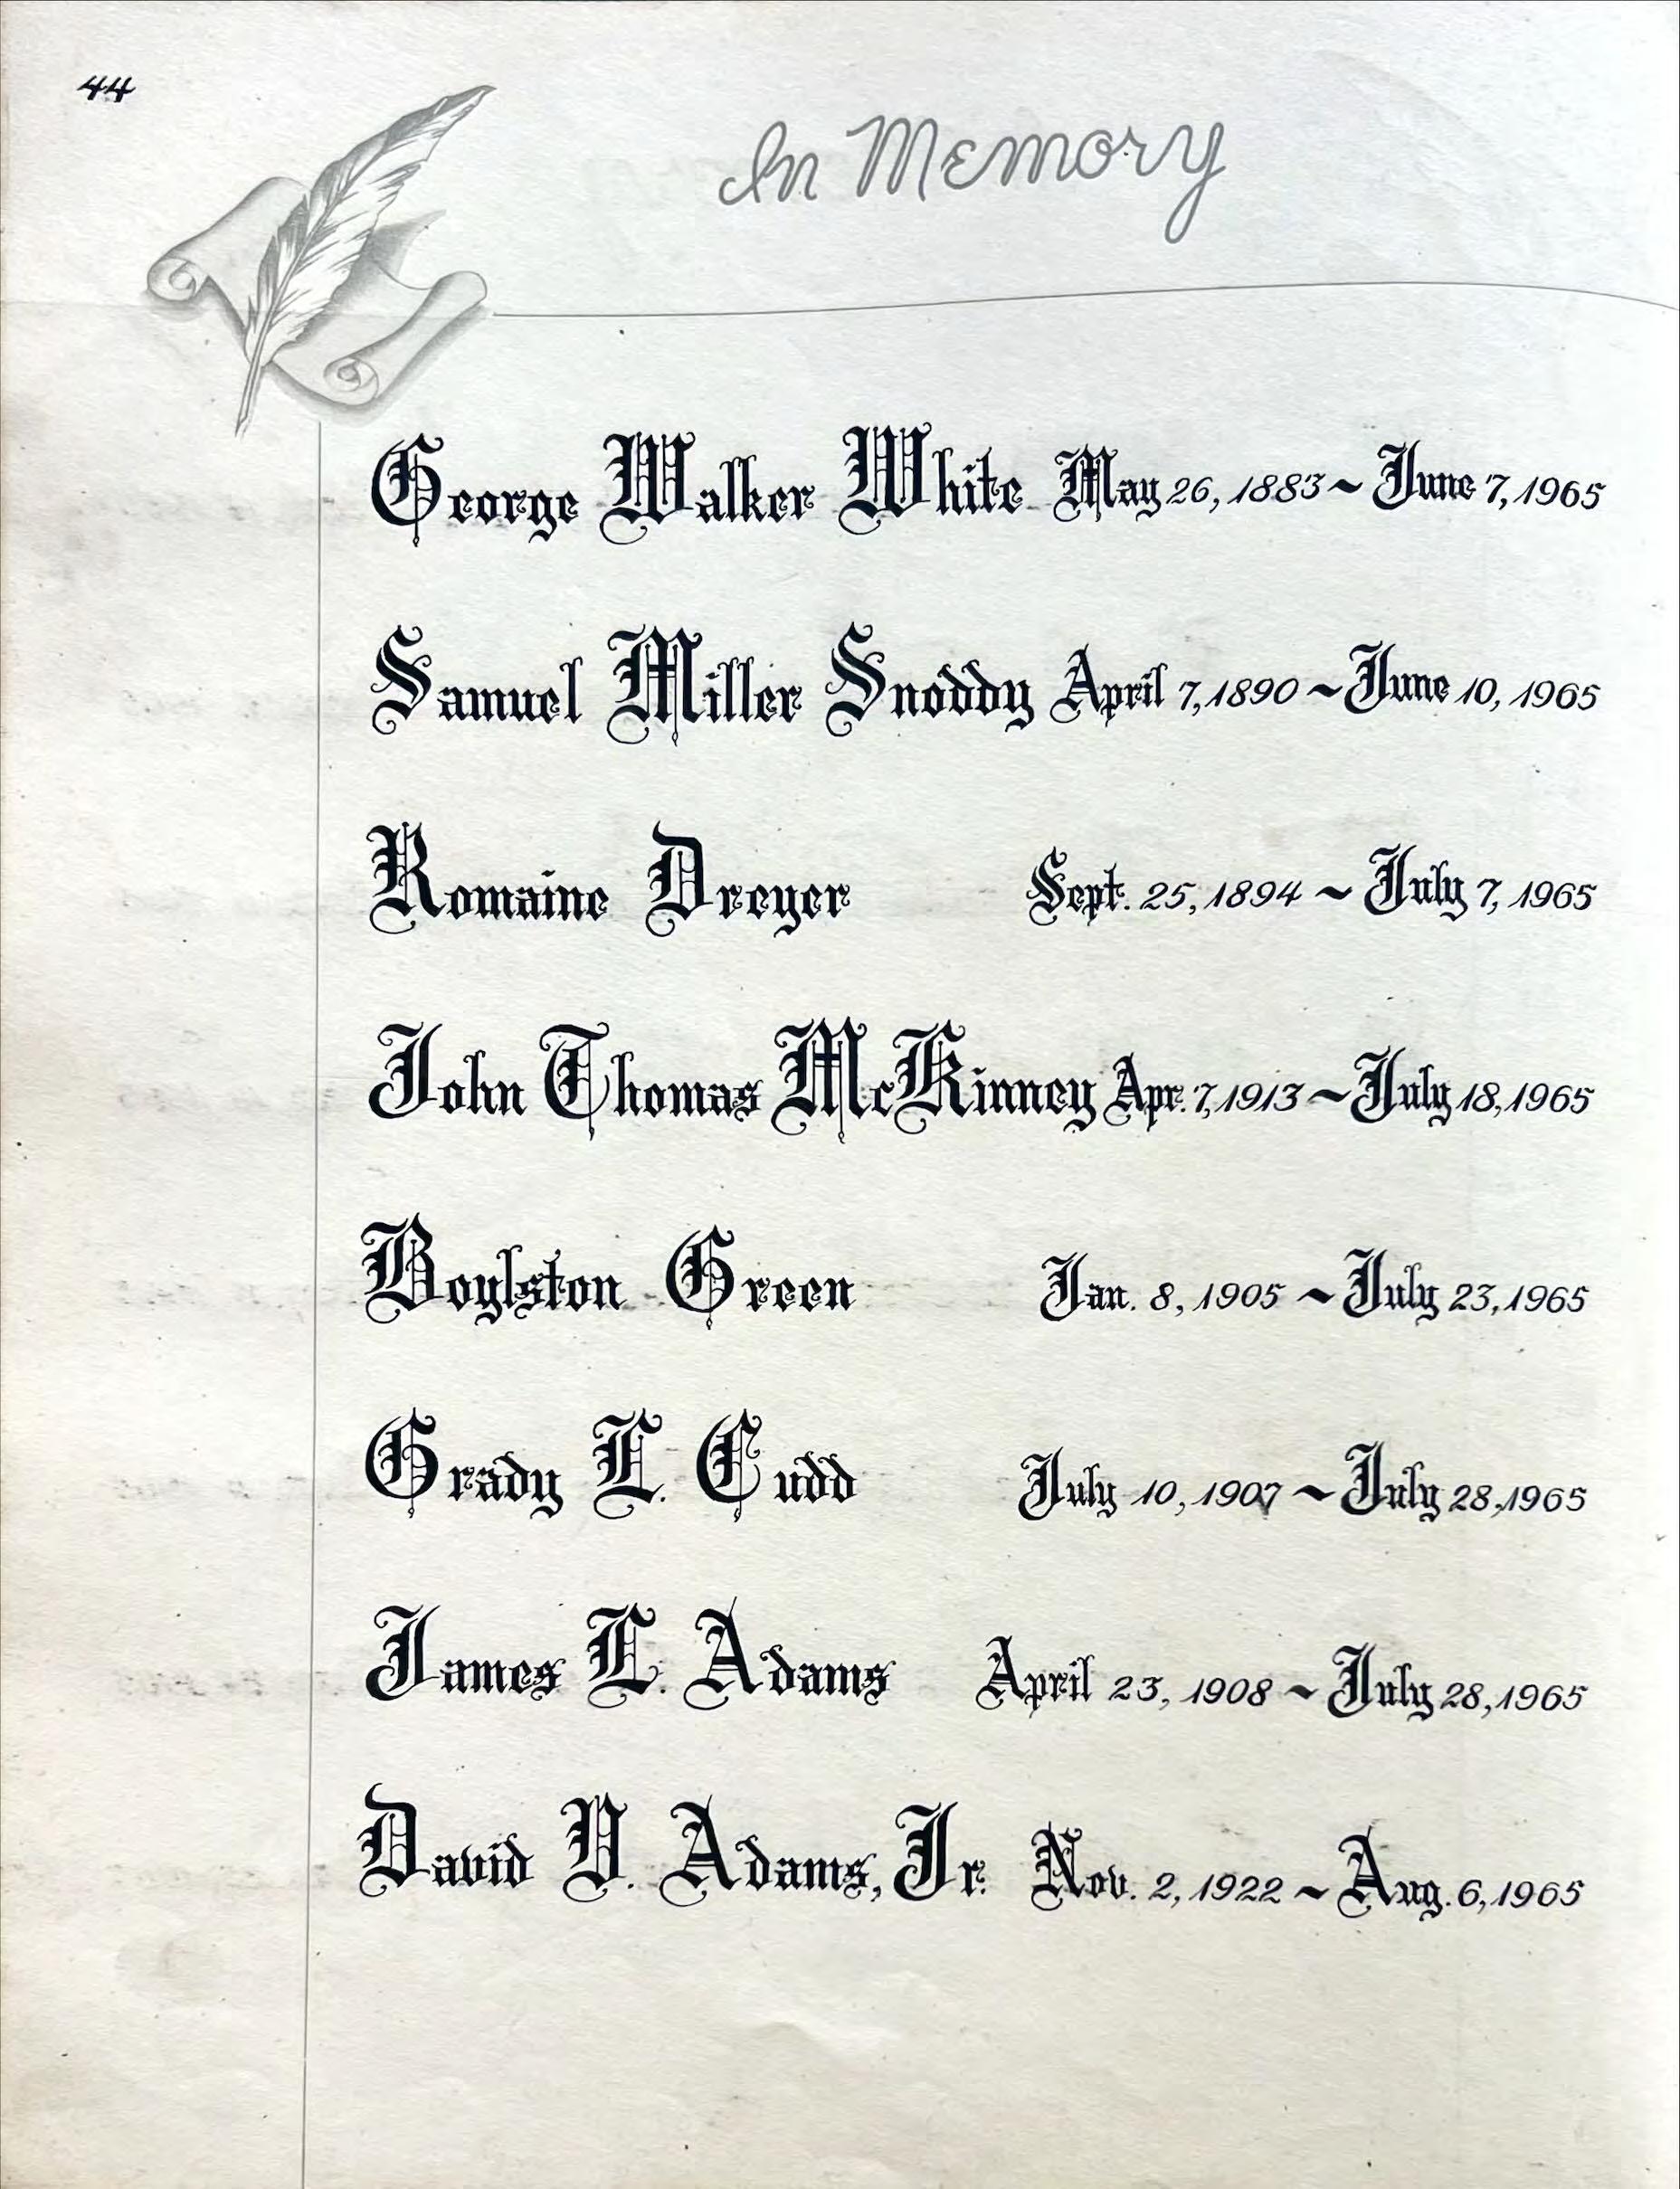 44
In Memory
George Walker White May 26, 1883 ~ June 7, 1965
Samuel Miller Snoddy April 7, 1890 ~ June 10, 1965
Romaine Dreyer Sept. 25, 1894 ~ July 7, 1965
John Thomas McKinney Apr. 7, 1913 ~ July 18, 1965
Boylston Green Jan. 8, 1905 ~ July 23, 1965
Grady L. Cudd July 10, 1907 ~ July 28, 1965
James L. Adams April 23, 1908 ~ July 28, 1965
David V. Adams, Jr. Nov. 2, 1922 ~ Aug. 6, 1965